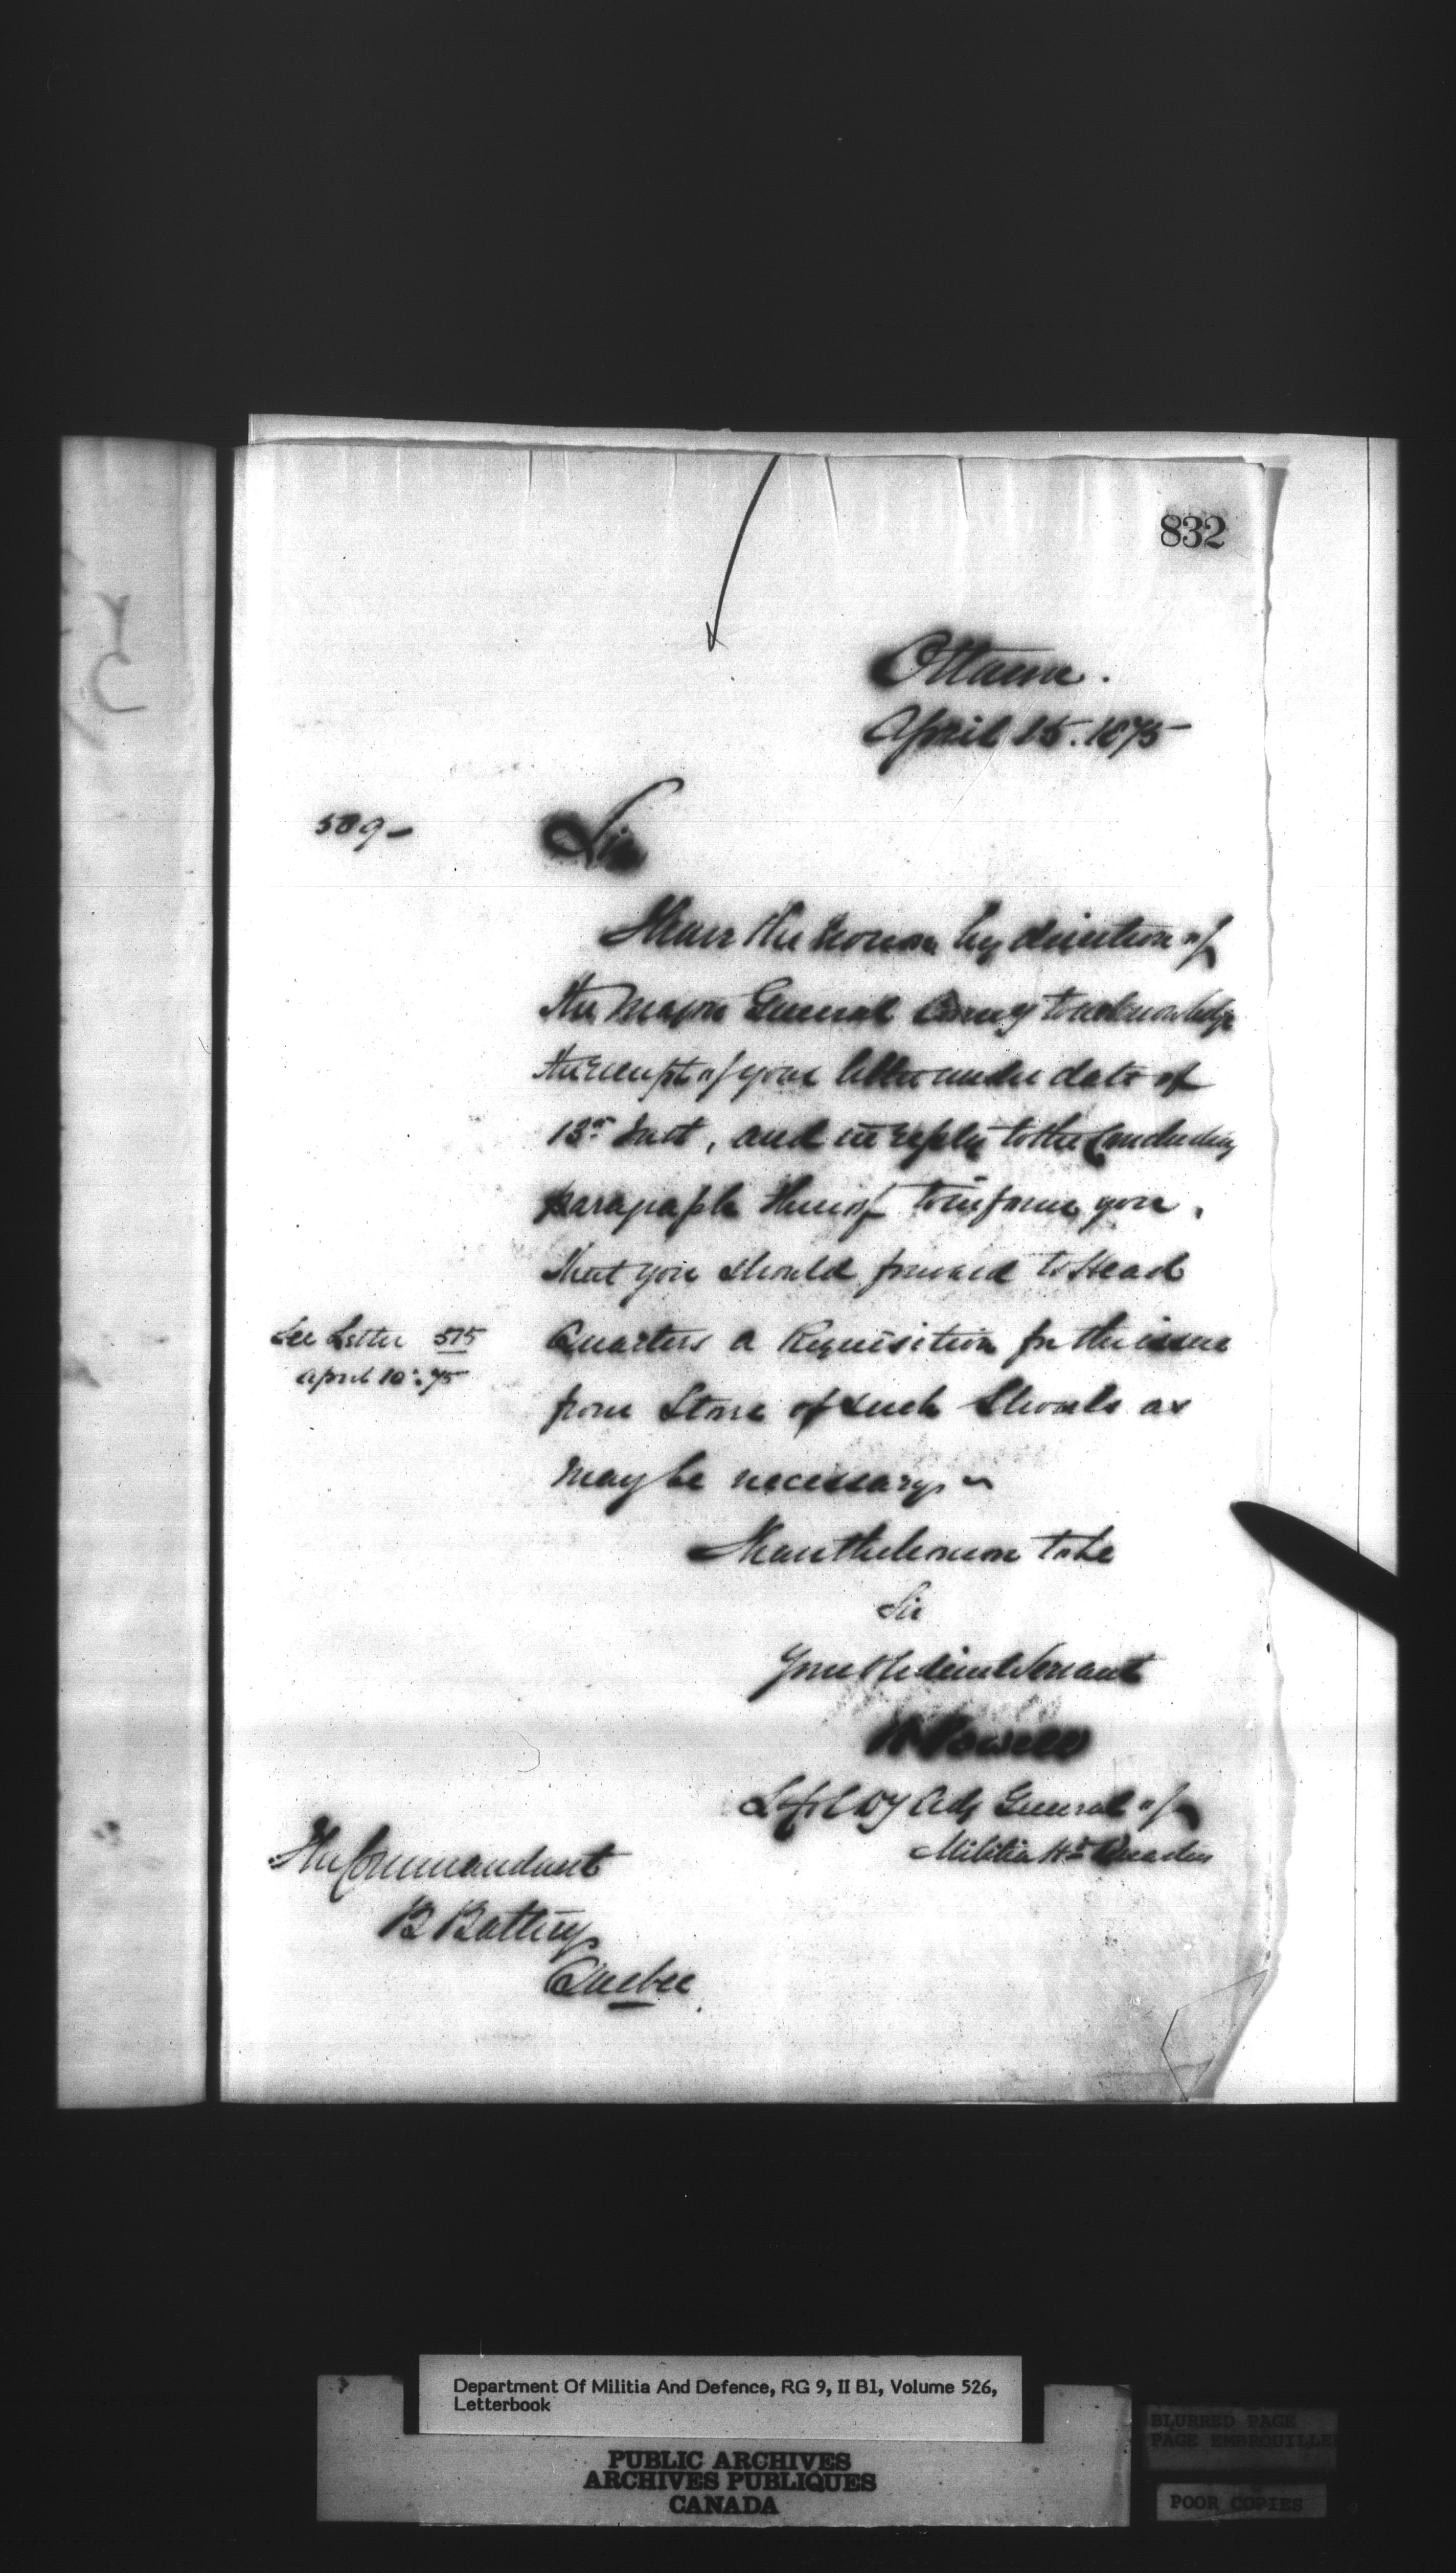 832
Ottawa.
April 15. 1875
589-
Sir
I have the honor by direction of
the Major General Comg to acknowledge
the receipt of your letter under date of
13th Inst, and in reply to the concluding
paragraph thereof to inform you,
that you should forward to Head
See Letter 575
April 10th 75
Quarters a Requisition for the issue
from Store of such as
may be necessary.
I have the honor to be
Sir
Your Obedient Servant
W Powell
Lt Col Dy Adj General of
Militia Hd Quarters
The Commandant
B Battery
Quebec.
Department Of Militia And Defence, RG 9, II B1, Volume 526,
Letterbook
PUBLIC ARCHIVES
ARCHIVES PUBLIQUES
CANADA
BLURRED PAGE
PAGE EMBROUILLE
POOR COPIES